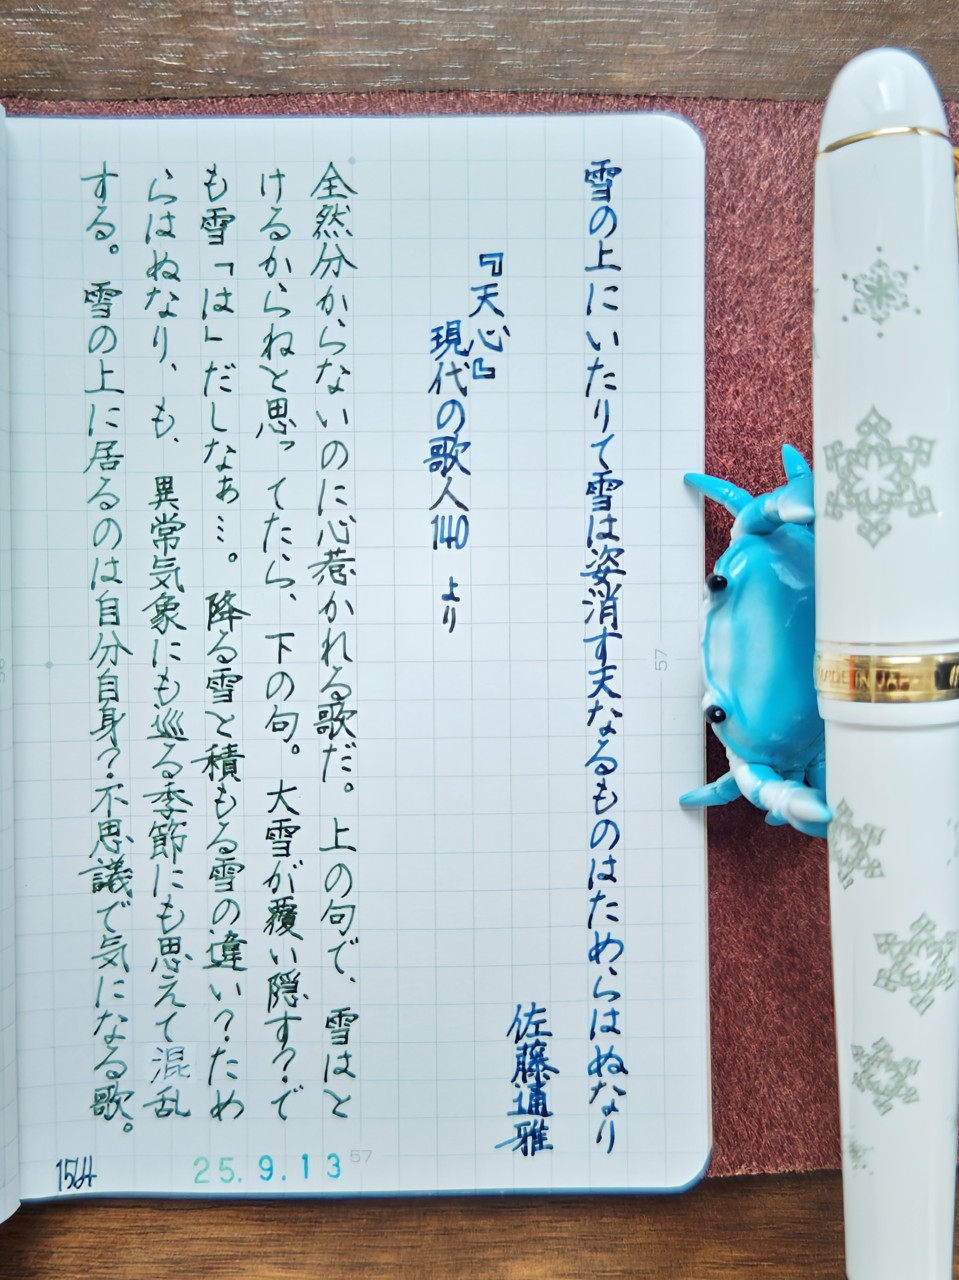 雪の上にいたりて雪は姿消す天なるものはためらはぬなり
佐藤通雅
『天心』
現代の歌人140 より
全然分からないのに心惹かれる歌だ。上の句で、雪はと
けるからねと思ってたら、下の句。大雪が覆い隠す?で
も雪「は」だしなぁ…。降る雪と積もる雪の違い?ため
らはぬなり、も、異常気象にも巡る季節にも思えて混乱
する。雪の上に居るのは自分自身?不思議で気になる歌。
1564
25.9.13
57
57
MADE IN JAPAN